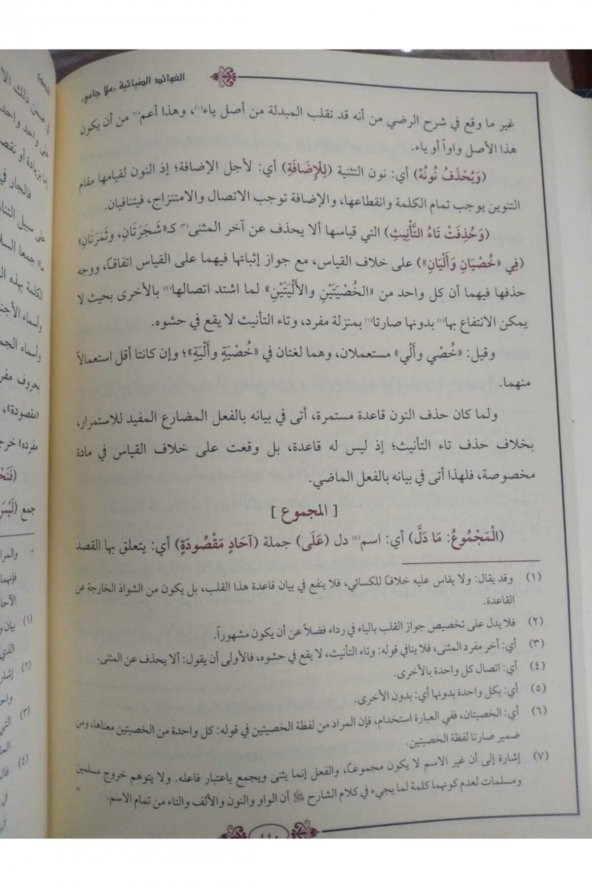 الفوائد الضيائية «ملا جامي»
غير ما وقع في شرح الرضي من أنه قد تقلب المبدلة من أصل ياء(١)، وهذا أعم(٢) من أن يكون
هذا الأصل واواً أو ياء.
(وَيُحْذَفُ نُونُهُ) أي: نون التثنية (لِلْإِضَافَةِ) أي: لأجل الإضافة؛ إذ النون لقيامها مقام
التنوين يوجب تمام الكلمة وانقطاعها، والإضافة توجب الاتصال والامتزاج، فيتنافيان.
(وَحُذِفَتْ تَاءُ التَّأْنِيثِ) التي قياسها ألا يحذف عن آخر المثنى(٣) كـ«شَجَرَتَانِ، وثَمَرَتَانِ»
(فِي «خُصْيَانِ وَأَلْيَانِ») على خلاف القياس، مع جواز إثباتها فيهما على القياس اتفاقًا، ووجه
حذفها فيهما أن كل واحد من «الخُصْيَتَيْنِ والأَلْيَتَيْنِ» لما اشتد اتصالها(٤) بالأخرى بحيث لا
يمكن الانتفاع بها(٥) بدونها صارتا(٦) بمنزلة مفرد، وتاء التأنيث لا يقع في حشوه.
وقيل: «خُصْي وأَلْي» مستعملان، وهما لغتان في «خُصْيَةٍ وأَلْيَةٍ»؛ وإن كانتا أقل استعمالاً
منهما.
ولما كان حذف النون قاعدة مستمرة، أتى في بيانه بالفعل المضارع المفيد للاستمرار،
بخلاف حذف تاء التأنيث؛ إذ ليس له قاعدة، بل وقعت على خلاف القياس في مادة
مخصوصة، فلهذا أتى في بيانه بالفعل الماضي.
[ المجموع ]
(الْمَجْمُوعُ: مَا دَلَّ) أي: اسم(٧) دل (عَلَى) جملة (آحَادٍ مَقْصُودَةٍ) أي: يتعلق بها القصد
(١) وقد يقال: ولا يقاس عليه خلافًا للكسائي، فلا ينفع في بيان قاعدة هذا القلب، بل يكون من الشواذ الخارجة عن
القاعدة.
(٢) فلا يدل على تخصيص جواز القلب بالياء في رداء فضلاً عن أن يكون مشهوراً.
(٣) أي: آخر مفرد المثنى، فلا ينافي قوله: وتاء التأنيث، لا يقع في حشوه، فالأولى أن يقول: ألا يحذف عن المثنى.
(٤) أي: اتصال كل واحدة بالأخرى.
(٥) أي: بكل واحدة بدونها أي: بدون الأخرى.
(٦) أي: الخصيتان، ففي العبارة استخدام، فإن المراد من لفظة الخصيتين في قوله: كل واحدة من الخصيتين معناها، ومن
ضمير صارتا لفظة الخصيتين.
(٧) إشارة إلى أن غير الاسم لا يكون مجموعًا، والفعل إنما يثنى ويجمع باعتبار فاعله. ولا يتوهم خروج مسلمين
ومسلمات لعدم كونهما كلمة لما يجيء في كلام الشارح ﷺ أن الواو والنون والألف والتاء من تمام الاسم.